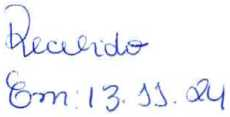 Recebido
Em: 13.11.24